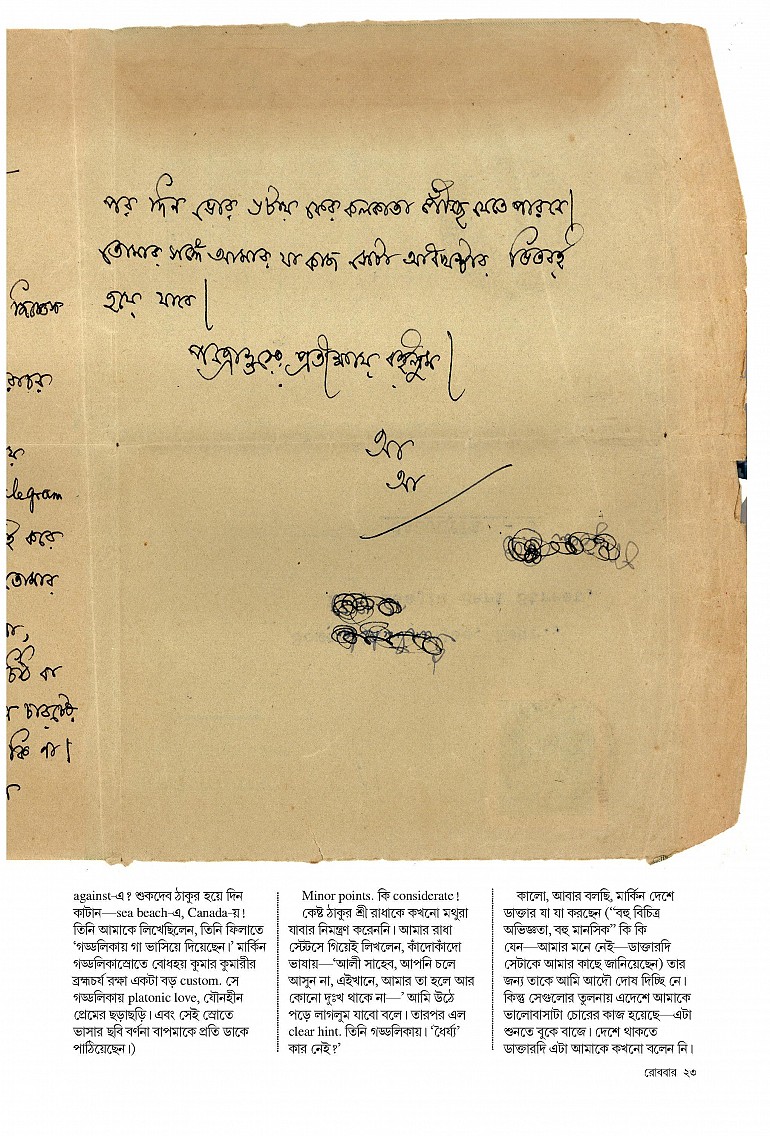 পর দিন ভোর ৬টায় ফের কলকাতা পৌঁছে যেতে পারবে।
তোমার সঙ্গে আমার যা কাজ সেটা আধঘন্টার ভিতরই
হয়ে যাবে।
পত্রোত্তরের প্রতীক্ষায় রইলুম।
আ
আ
legram
ই করে
তোমার
না,
চিঠি বা
কি না।
against-এ? শুকদেব ঠাকুর হয়ে দিন
কাটান—sea beach-এ, Canada-য়!
তিনি আমাকে লিখেছিলেন, তিনি ফিলাতে
‘গড্ডলিকায় গা ভাসিয়ে দিয়েছেন।’ মার্কিন
গড্ডলিকাস্রোতে বোধহয় কুমার কুমারীর
ব্রহ্মচর্য রক্ষা একটা বড় custom. সে
গড্ডলিকায় platonic love, যৌনহীন
প্রেমের ছড়াছড়ি। এবং সেই স্রোতে
ভাসার ছবি বর্ণনা বাপমাকে প্রতি ডাকে
পাঠিয়েছেন।)
Minor points. কি considerate!
কেষ্ট ঠাকুর শ্রী রাধাকে কখনো মথুরা
যাবার নিমন্ত্রণ করেননি। আমার রাধা
স্টেটসে গিয়েই লিখলেন, কাঁদোকাঁদো
ভাষায়—‘আলী সাহেব, আপনি চলে
আসুন না, এইখানে, আমার তা হলে আর
কোনো দুঃখ থাকে না—’ আমি উঠে
পড়ে লাগলুম যাবো বলে। তারপর এল
clear hint. তিনি গড্ডলিকায়। ‘ধৈর্য্য’
কার নেই?’
কালো, আবার বলছি, মার্কিন দেশে
ডাক্তার যা যা করছেন (“বহু বিচিত্র
অভিজ্ঞতা, বহু মানসিক” কি কি
যেন—আমার মনে নেই—ডাক্তারদি
সেটাকে আমার কাছে জানিয়েছেন) তার
জন্য তাকে আমি আদৌ দোষ দিচ্ছি নে।
কিন্তু সেগুলোর তুলনায় এদেশে আমাকে
ভালোবাসাটা চোরের কাজ হয়েছে—এটা
শুনতে বুকে বাজে। দেশে থাকতে
ডাক্তারদি এটা আমাকে কখনো বলেন নি।
রোববার ২৩